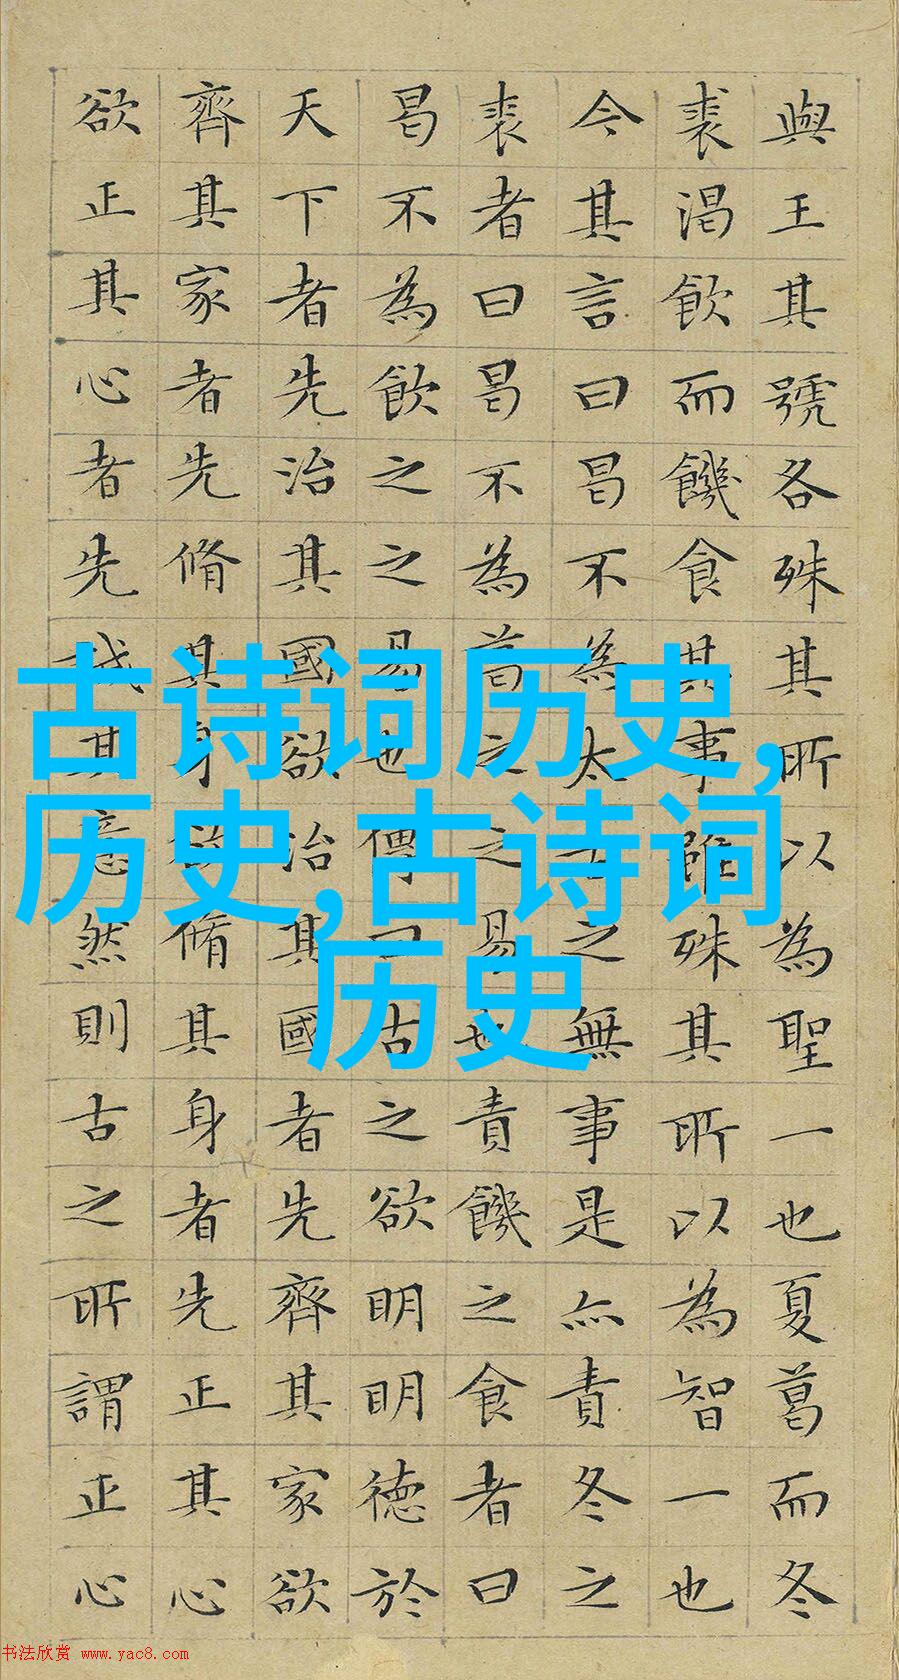 與王其號各殊其所以為聖一也夏葛而冬
裘渴飲而饑食其事雖殊其所以為智一也
今其言曰曷不為太古之無事是亦責冬之
裘者曰曷不為葛之之易也責饑之食者曰
曷不為飲之之易也傳曰古之欲明明德於
天下者先治其國欲治其國者先齊其家欲
齊其家者先脩其身欲脩其身者先正其心
欲正其心者先誠其意然則古之所謂正心
古诗词历史,
历史,古诗词
历史
书法欣赏 www.yac8.com